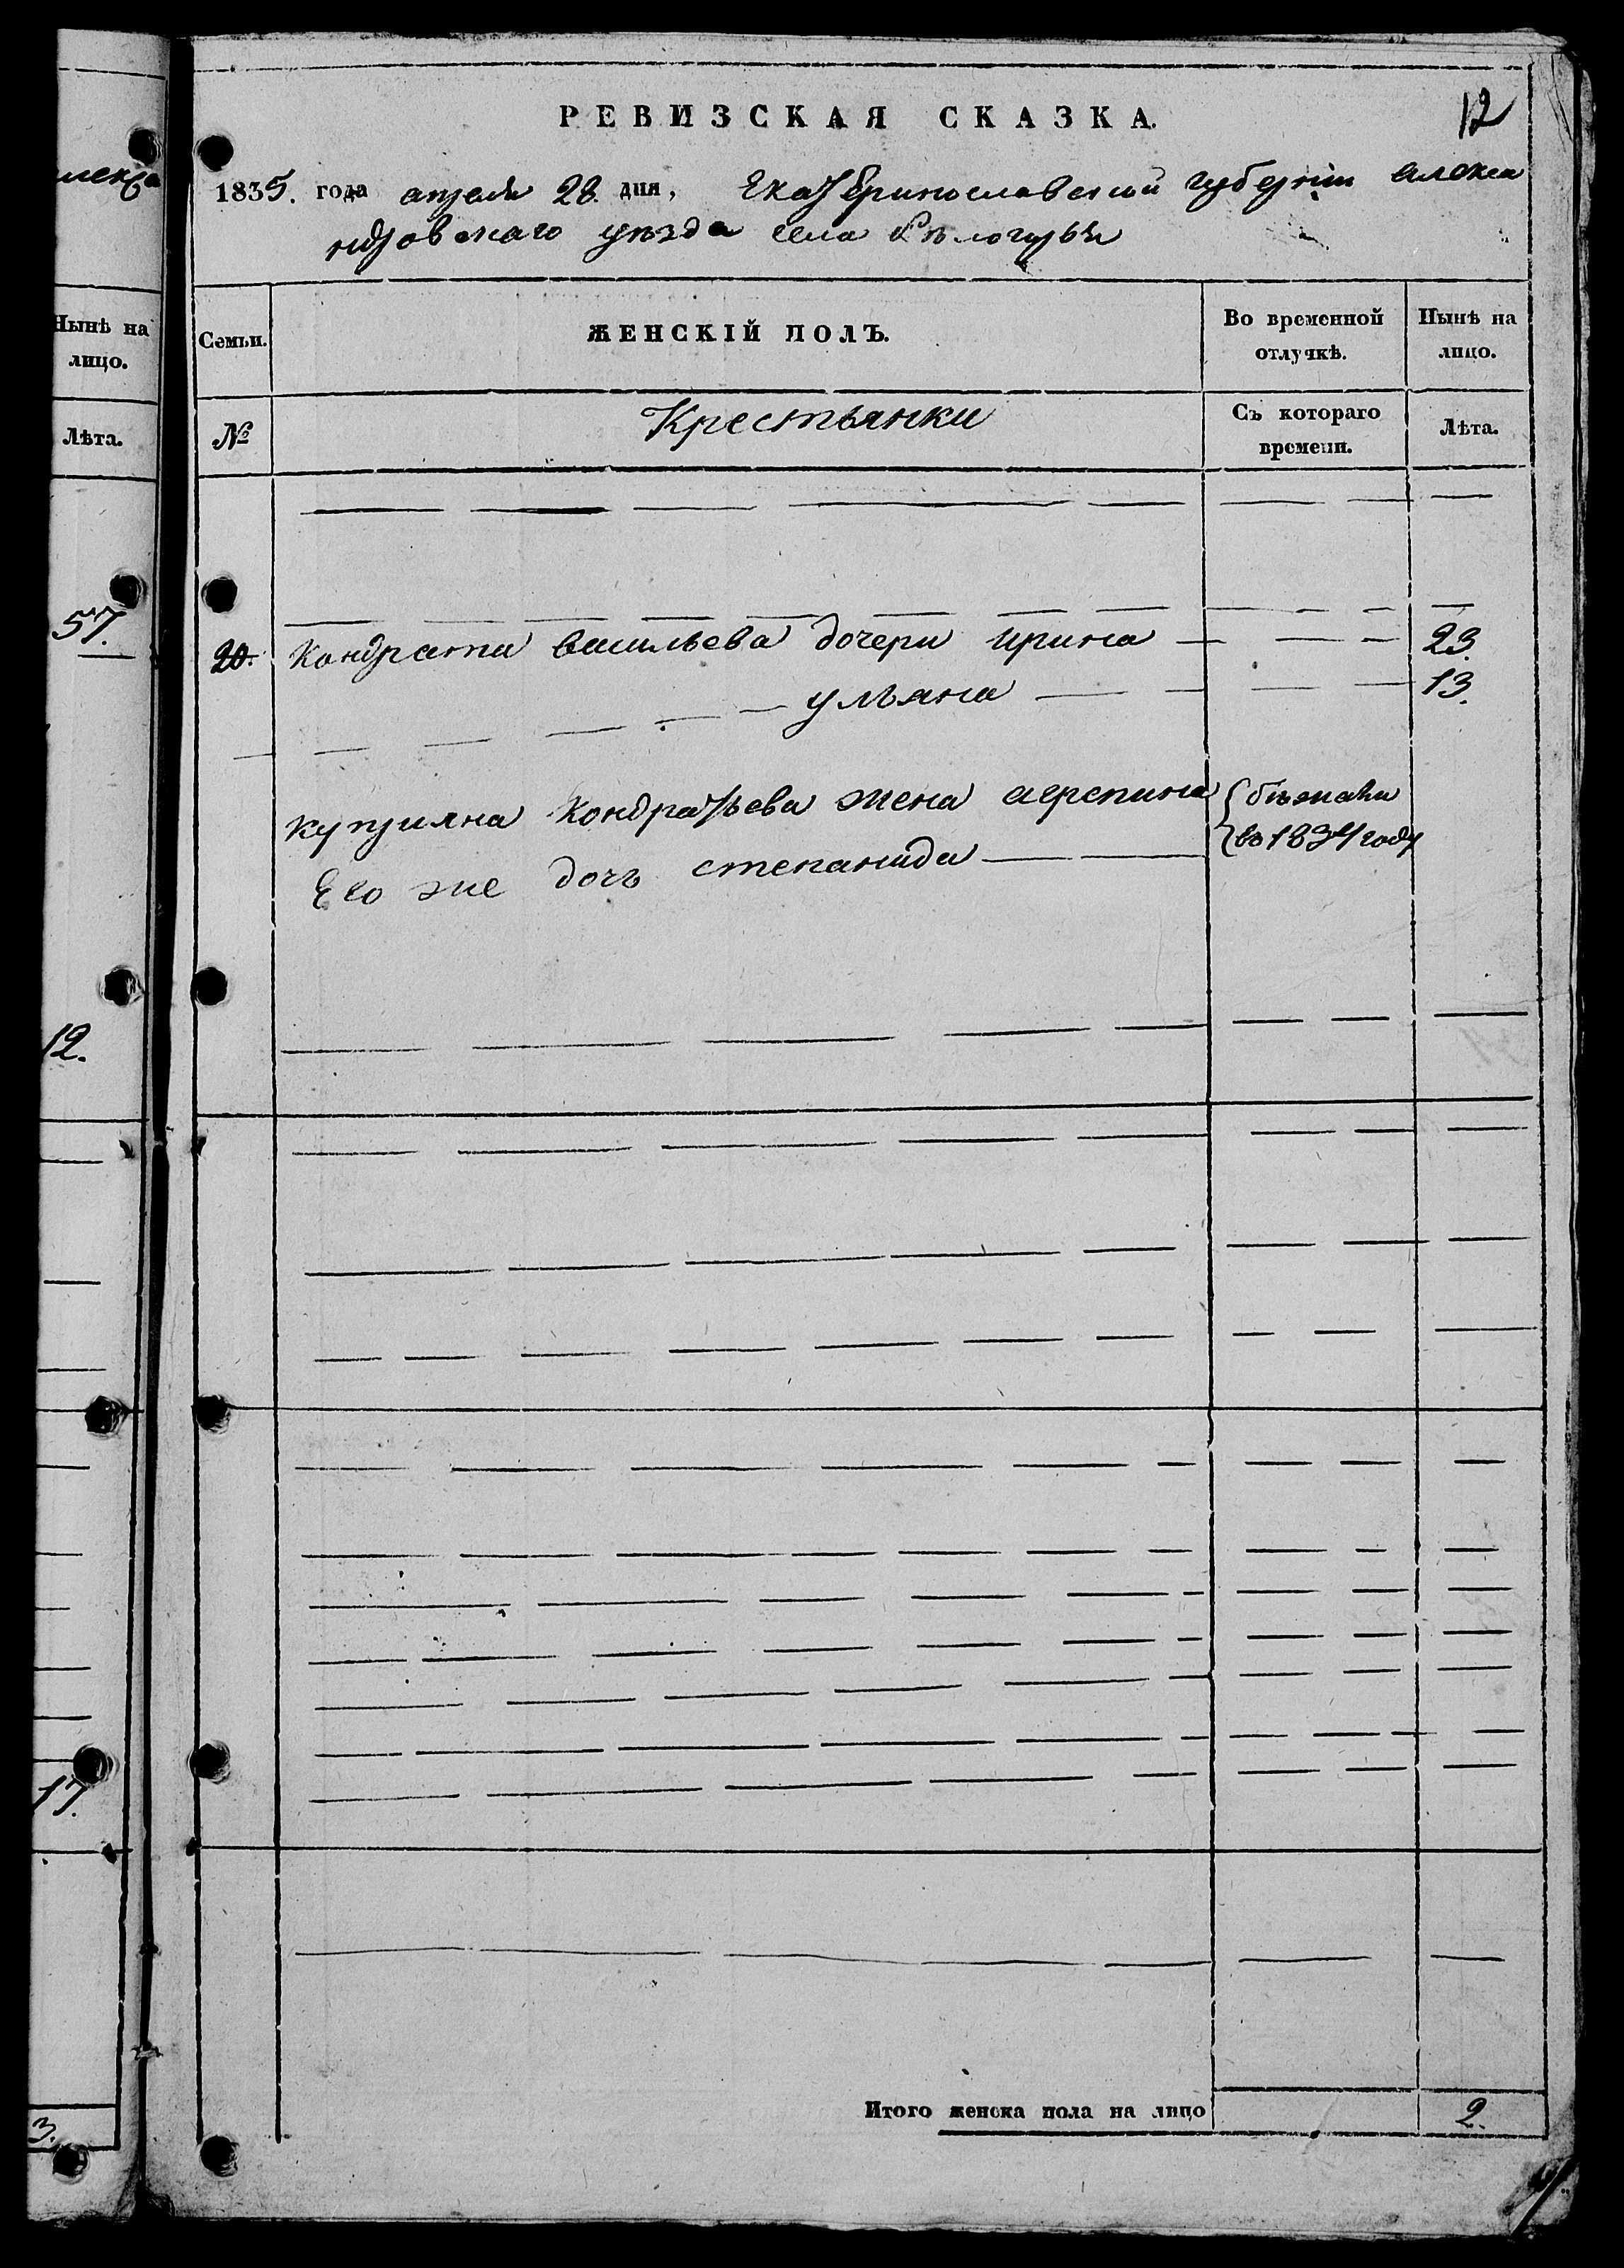 РЕВИЗСКАЯ СКАЗКА.
12
1835. года апреля 28. дня, Екатеринославской губернiи Алекса
ндровскаго уѣзда села Бѣлогорья
Семьи.
ЖЕНСКІЙ ПОЛЪ.
Во временной отлучкѣ.
Нынѣ на лицо.
№
Крестьянки
Съ котораго времени.
Лѣта.
20. Кондратия Васильева дочери Ирина 23.
Ульяна 13.
Куприяна Кондратьева жена Агрепина бѣжали
Его же дочь Степанида въ 1834 году
Итого женска пола на лицо 2.
Нынѣ на
лицо.
Лѣта.
57.
12.
17.
3.